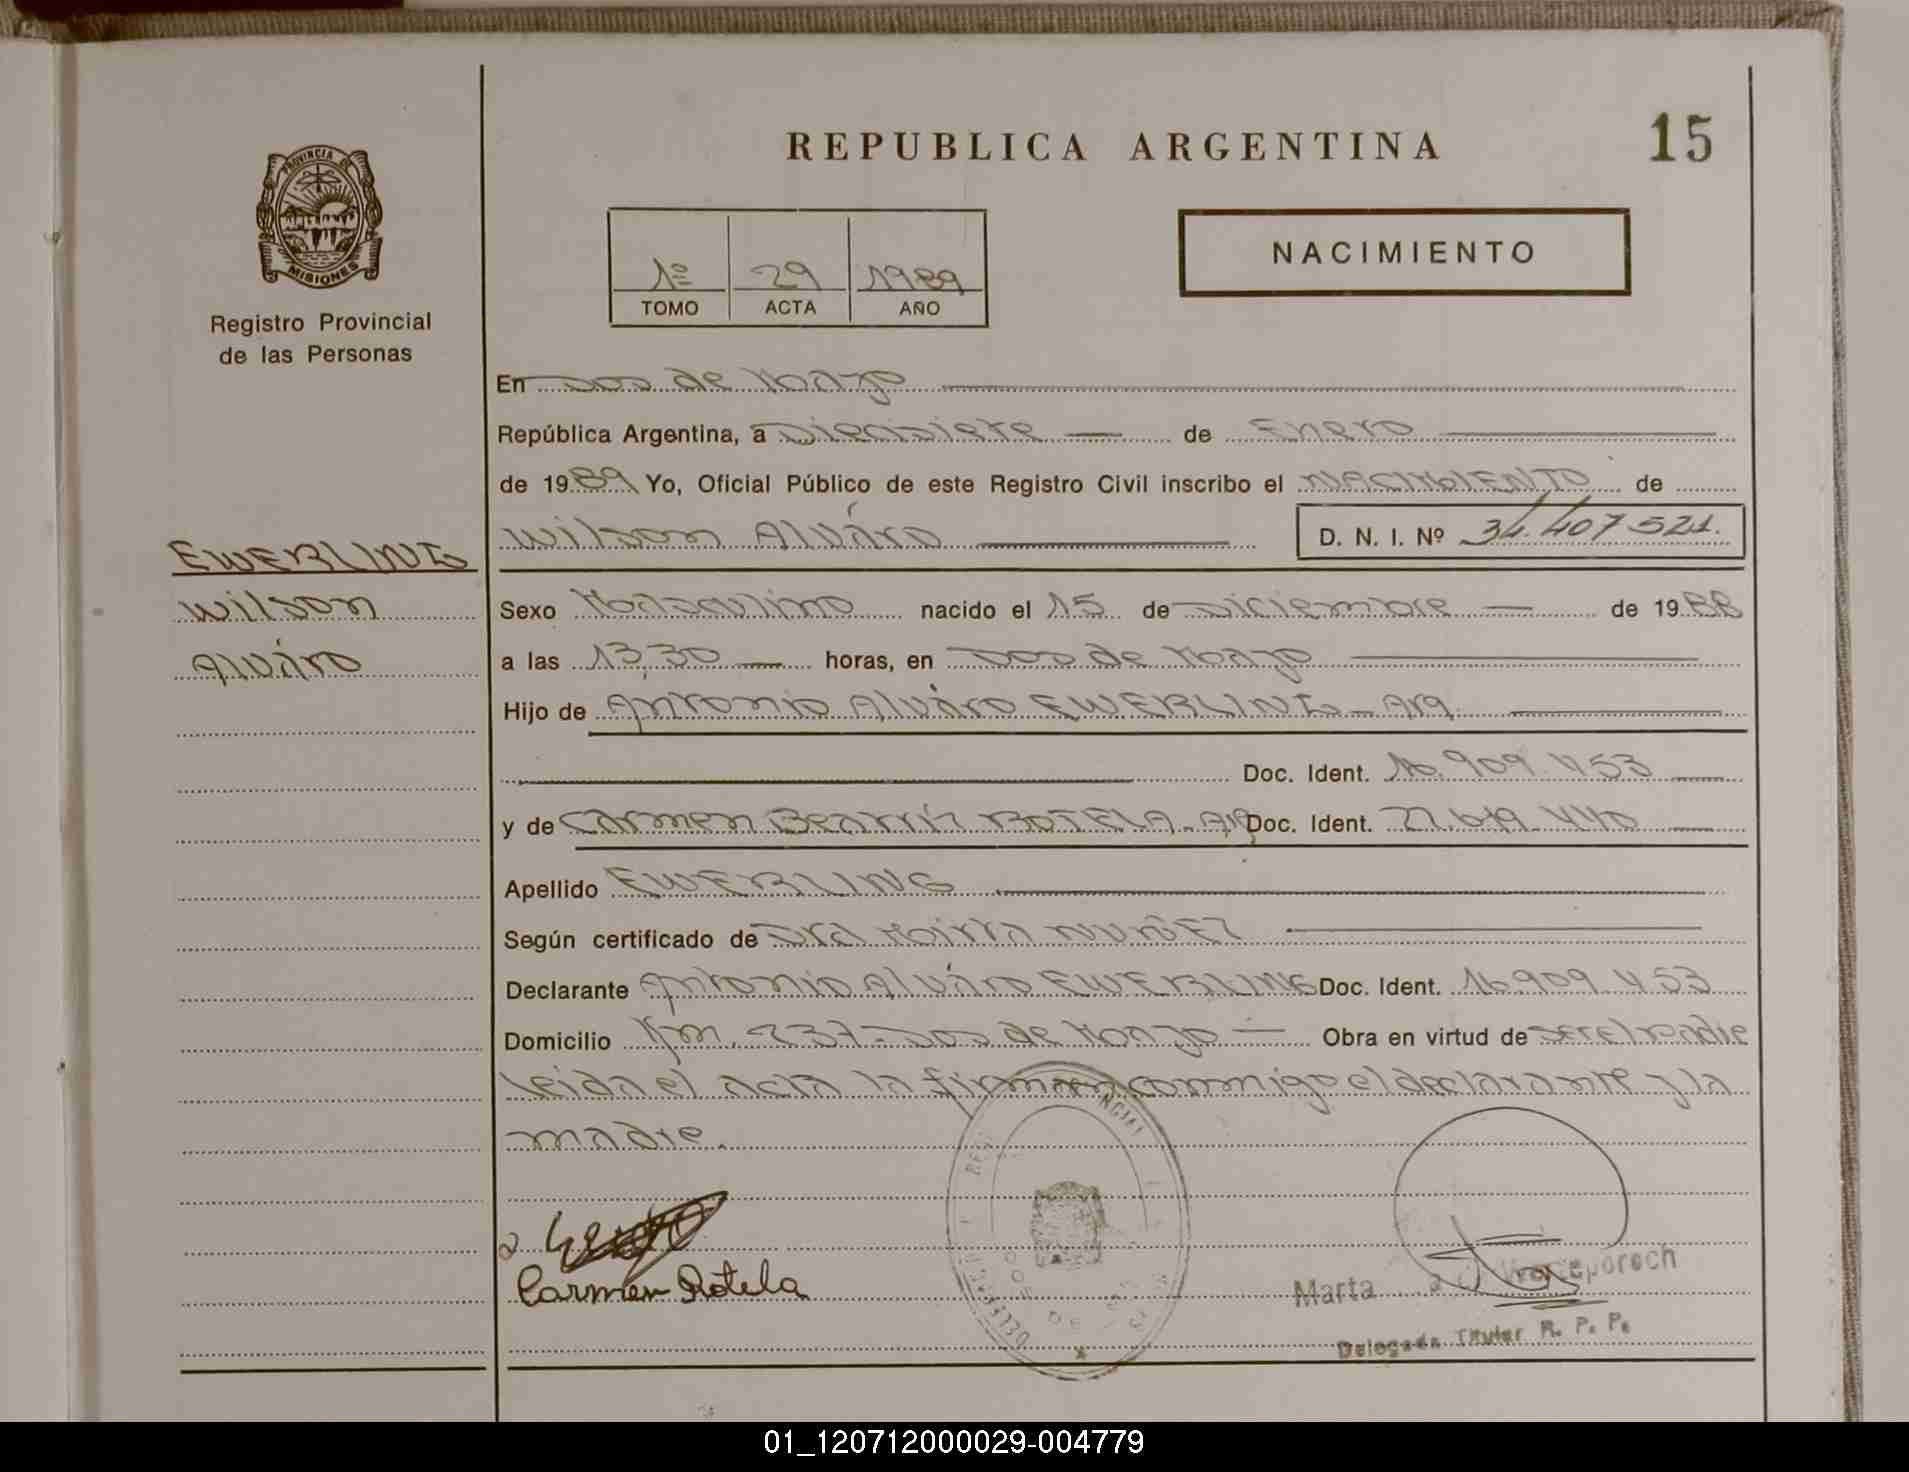 REPUBLICA ARGENTINA
15
PROVINCIA DE
MISIONES
Registro Provincial
de las Personas
1º 29 1989
TOMO ACTA AÑO
NACIMIENTO
En Dos de Mayo
República Argentina, a Diecisiete de Enero
de 1989 Yo, Oficial Público de este Registro Civil inscribo el NACIMIENTO de
Wilson Alváro
D. N. I. Nº 34.407.521.
EWERLING
Wilson
Alváro
Sexo Masculino nacido el 15 de Diciembre de 1988
a las 13,30 horas, en Dos de Mayo
Hijo de Antonio Alváro EWERLING - Arg.
Doc. Ident. 16.909.453
y de Carmen Beatriz ROTELA - Arg Doc. Ident. 22.649.440
Apellido EWERLING
Según certificado de Dra Mirta NUÑEZ
Declarante Antonio Alváro EWERLING Doc. Ident. 16.909.453
Domicilio Km. 237 - Dos de Mayo Obra en virtud de ser el padre
leida el acta la firman conmigo el declarante y la
madre.
Carmen Rotela
Marta
Delegada Titular R. P. P.
01_120712000029-004779